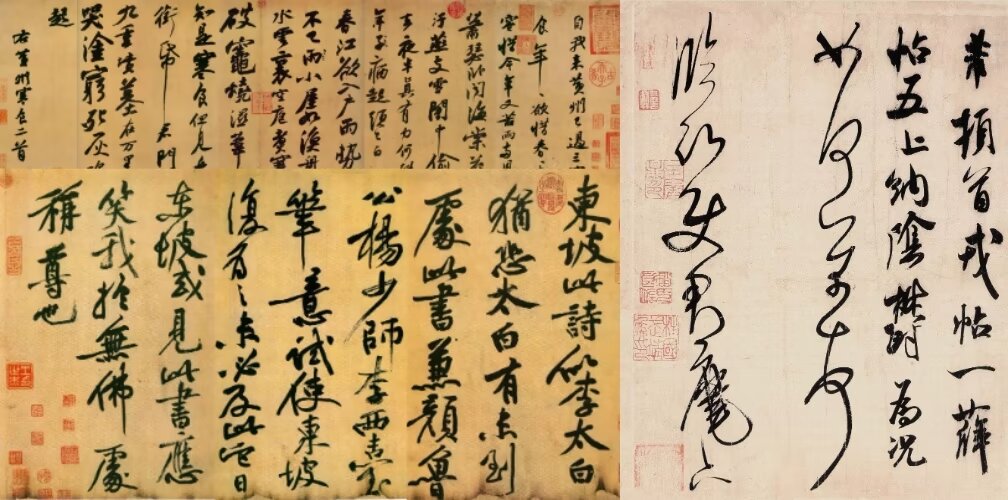 自我来黄州已過三
食年〻欲惜春
容惜今年又苦雨兩月
蕭瑟卧聞海棠花
泥汙燕支雪闇中偷
去夜半真有力何殊
年子病起頭已白
春江欲入戶雨勢
不已雨小屋如漁舟
水雲裏空庖煮寒
破竈燒濕葦
知是寒食但見烏
銜帋君門
九重墳墓在万里
哭塗窮死灰
起
右黄州寒食二首
東坡此詩似李太白
猶恐太白有未到
處此書兼顏魯
公楊少師李西臺
筆意試使東坡
復為之未必及此它日
東坡或見此書應
笑我於無佛處
稱尊也
芾頓首戎帖一薛
帖五上納陰鬱為況
如何芾頓首
臨沂使君麾下